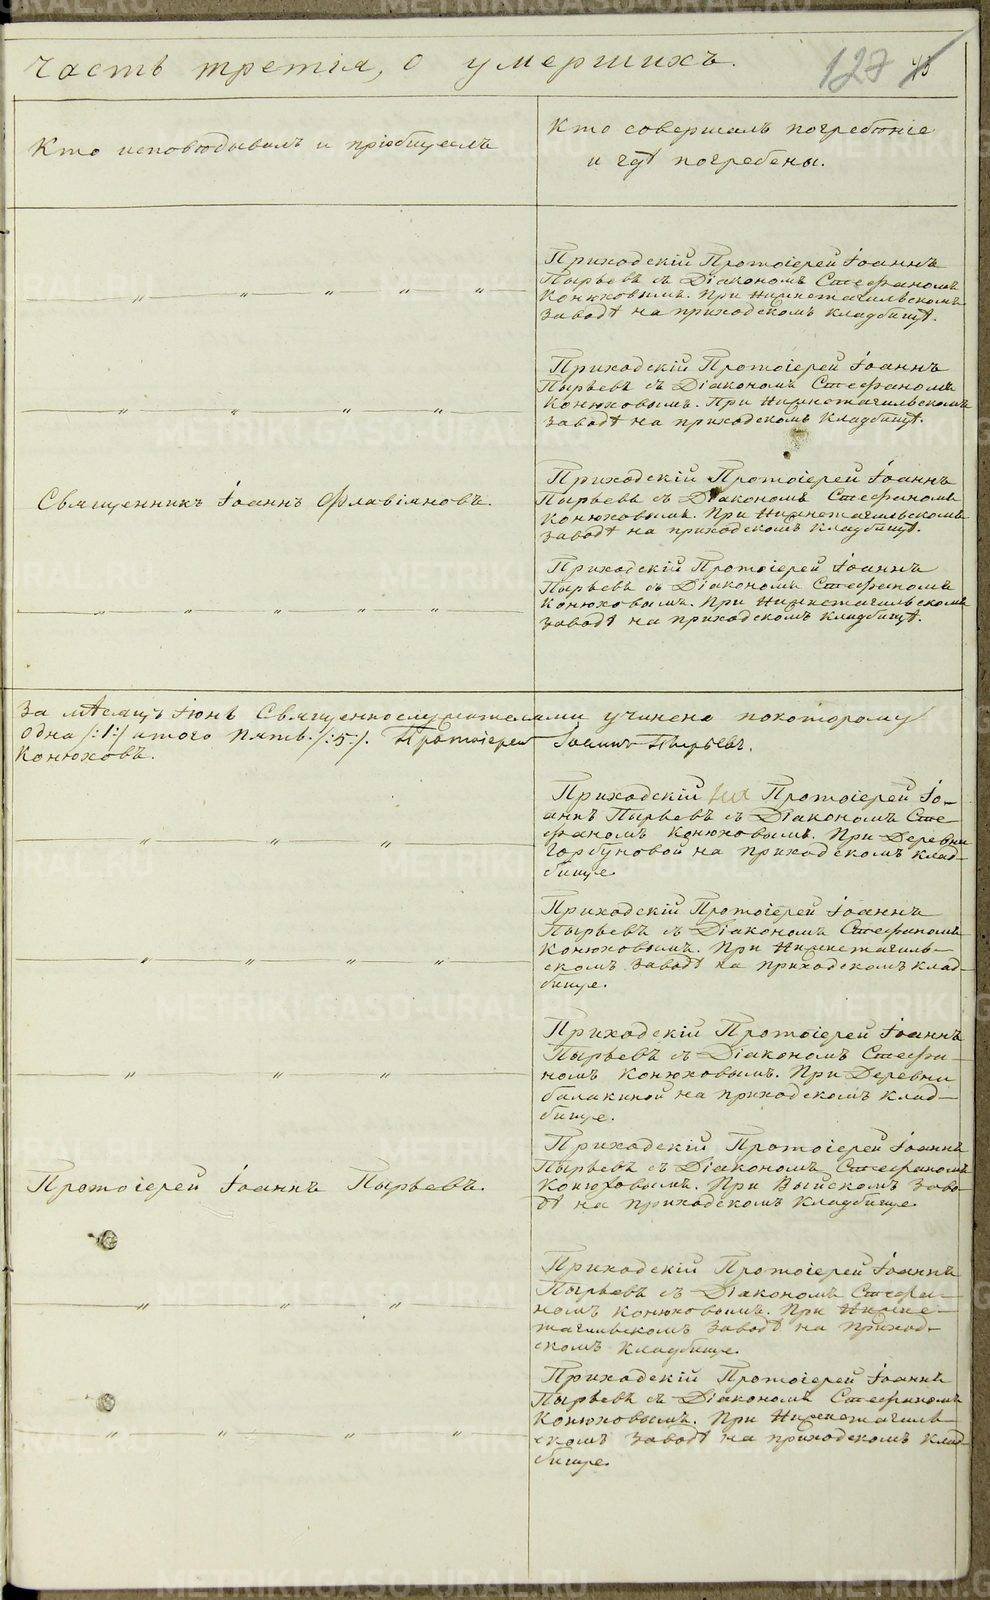 часть третія, о умершихъ.
127
Кто исповѣдывалъ и пріобщалъ
Кто совершалъ погребѣніе
и гдѣ погребены.
Приходскій Протоіерей Іоаннъ
Пырьевъ съ Діакономъ Стефаномъ
Конюховымъ. При Нижнетагильскомъ
заводѣ на приходскомъ кладбищѣ.
Приходскій Протоіерей Іоаннъ
Пырьевъ съ Діакономъ Стефаномъ
Конюховымъ. При Нижнетагильскомъ
заводѣ на приходскомъ кладбищѣ.
Священникъ Іоаннъ Флавіяновъ.
Приходскій Протоіерей Іоаннъ
Пырьевъ съ Діакономъ Стефаномъ
Конюховымъ. При Нижнетагильскомъ
заводѣ на приходскомъ кладбищѣ.
Приходскій Протоіерей Іоаннъ
Пырьевъ съ Діакономъ Стефаномъ
Конюховымъ. При Нижнетагильскомъ
заводѣ на приходскомъ кладбищѣ.
За мѣсяцъ Іюнь Священнослужителями учинена покоторому
одна /:1:/ итого пять /:5:/. Протоіерей Іоаннъ Пырьевъ.
Конюховъ.
Приходскій Протоіерей Іо-
аннъ Пырьевъ съ Діакономъ Сте-
фаномъ Конюховымъ. При Деревни
Горбуновой на приходскомъ клад-
бище.
Приходскій Протоіерей Іоаннъ
Пырьевъ съ Діакономъ Стефаномъ
Конюховымъ. При Нижнетагиль-
скомъ заводѣ на приходскомъ клад-
бище.
Приходскій Протоіерей Іоаннъ
Пырьевъ съ Діакономъ Стефа-
номъ Конюховымъ. При Деревни
балакиной на приходскомъ клад-
бище.
Протоіерей Іоаннъ Пырьевъ.
Приходскій Протоіерей Іоаннъ
Пырьевъ съ Діакономъ Стефаномъ
Конюховымъ. При Выйскомъ Заво-
дѣ на приходскомъ кладбище.
Приходскій Протоіерей Іоаннъ
Пырьевъ съ Діакономъ Стефа-
номъ Конюховымъ. При Нижне-
тагильскомъ заводѣ на приход-
скомъ кладбище.
Приходскій Протоіерей Іоаннъ
Пырьевъ съ Діакономъ Стефаномъ
Конюховымъ. При Нижнетагиль-
скомъ заводѣ на приходскомъ клад-
бище.
METRIKI.GASO-URAL.RU